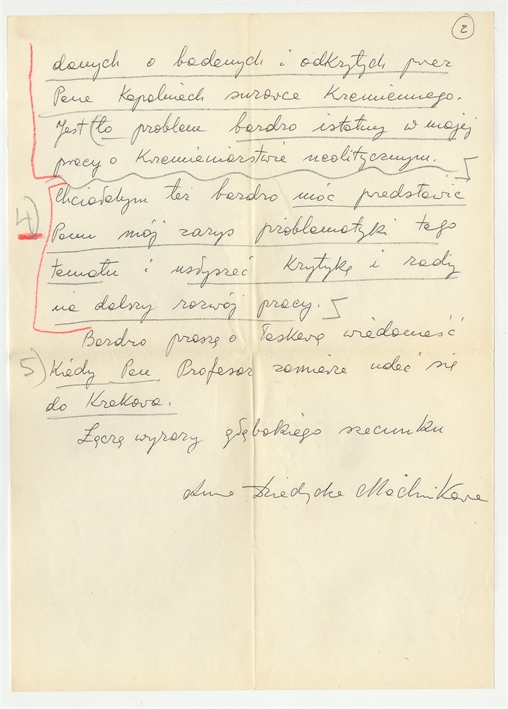 2
danych o badanych i odkrytych przez
Pana Kopalniach surowca Krzemiennego.
Jest to problem bardzo istotny w mojej
pracy o Krzemieniarstwie neolitycznym.
Chciałabym też bardzo móc przedstawić
4) Panu mój zarys problematyki tego
tematu i usłyszeć krytykę i rady
na dalszy rozwój pracy.
Bardzo proszę o łaskawą wiadomość
5) Kiedy Pan Profesor zamierza udać się
do Krakowa.
Łączę wyrazy głębokiego szacunku
Anna Dzieduszycka Machnikowa